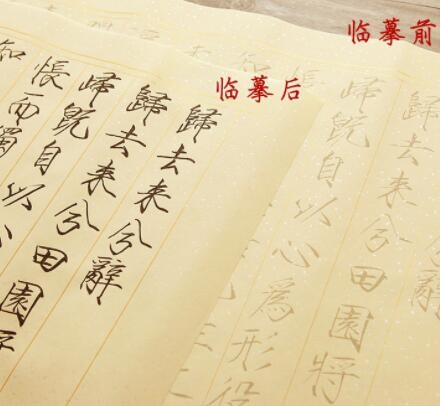 临摹前
临摹后
歸去来兮辭
歸去来兮田園將
歸既自以心
悵而獨
知
歸去来兮田園將
歸既自以心為形役